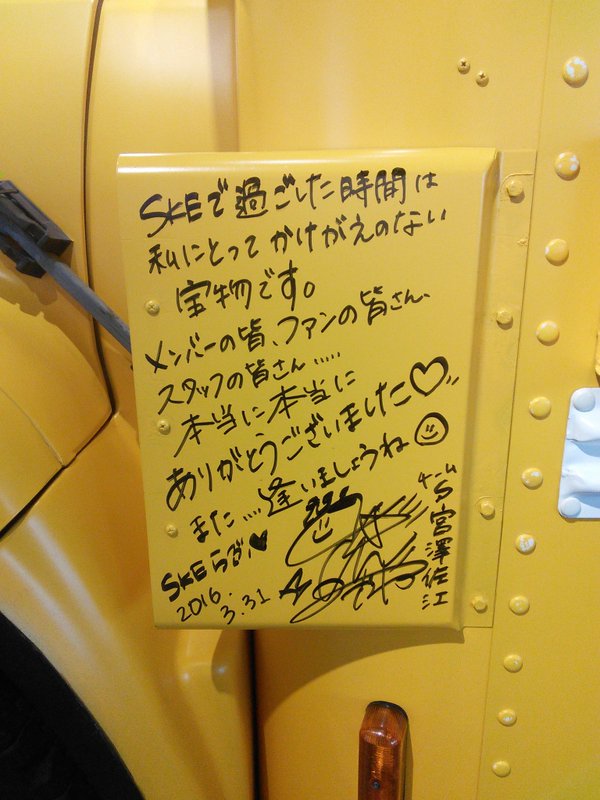 SKEで過ごした時間は
私にとってかけがえのない
宝物です。
メンバーの皆、ファンの皆さん、
スタッフの皆さん.....
本当に本当に
ありがとうございました♡
また....逢いましょうね☺
SKEらぶ♥
2016.
3.31
チームS宮澤佐江